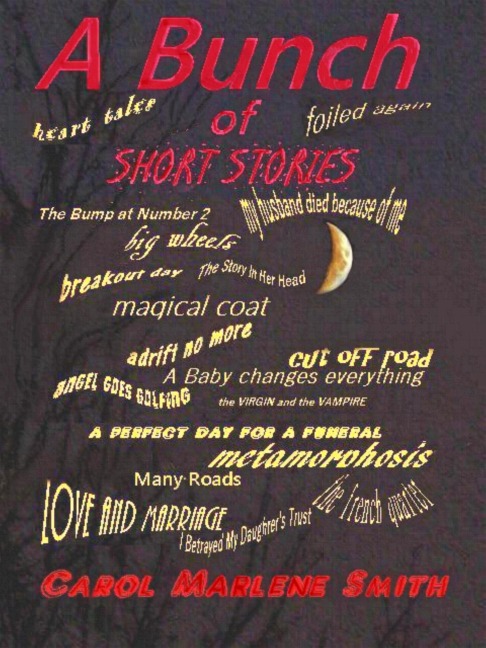 A Bunch
heart tales
of
foiled again
SHORT STORIES
The Bump at Number 2
my husband died because of me
big wheels
breakout day
The Story In Her Head
magical coat
adrift no more
cut off road
A Baby changes everything
ANGEL GOES GOLFING
the VIRGIN and the VAMPIRE
A PERFECT DAY FOR A FUNERAL
metamorphosis
Many Roads
the french quarter
LOVE AND MARRIAGE
I Betrayed My Daughter's Trust
CAROL MARLENE SMITH